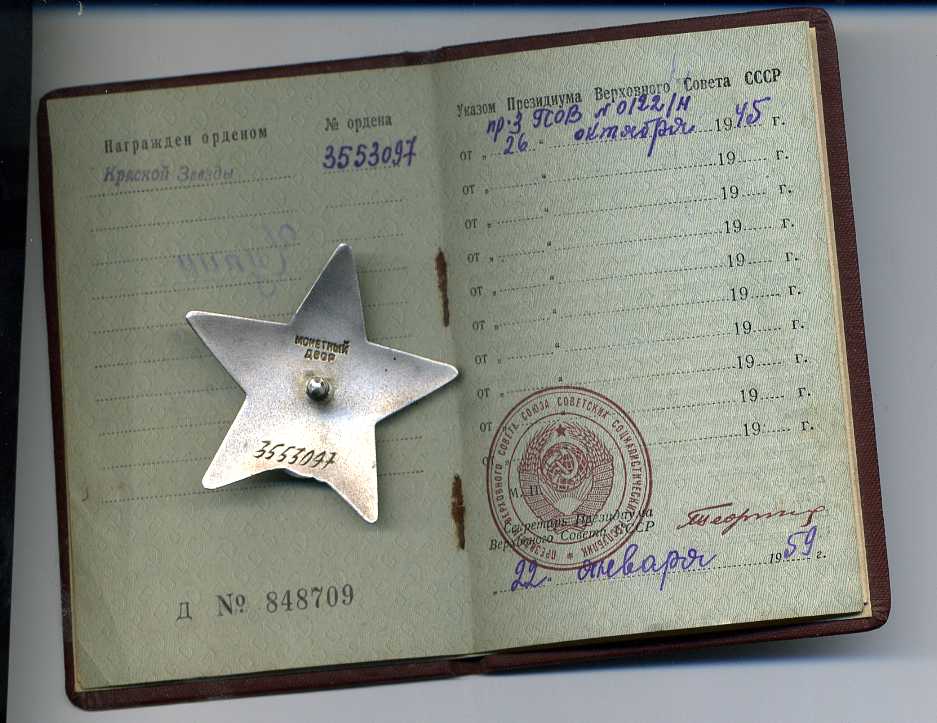 Награжден орденом
№ ордена
Красной Звезды
3553097
МОНЕТНЫЙ
ДВОР
3553097
Д № 848709
Указом Президиума Верховного Совета СССР
пр-з ПОВ №0122/н
от „ 26 “ октября 1945 г.
от „ “ 19 г.
от „ “ 19 г.
от „ “ 19 г.
от „ “ 19 г.
от „ “ 19 г.
от „ “ 19 г.
от „ “ 19 г.
от „ “ 19 г.
„ 19 г.
ВЕРХОВНОГО СОВЕТА СОЮЗА СОВЕТСКИХ СОЦИАЛИСТИЧЕСКИХ РЕСПУБЛИК
М. П.
Секретарь Президиума
Верховного Совета СССР
22. января 1959 г.